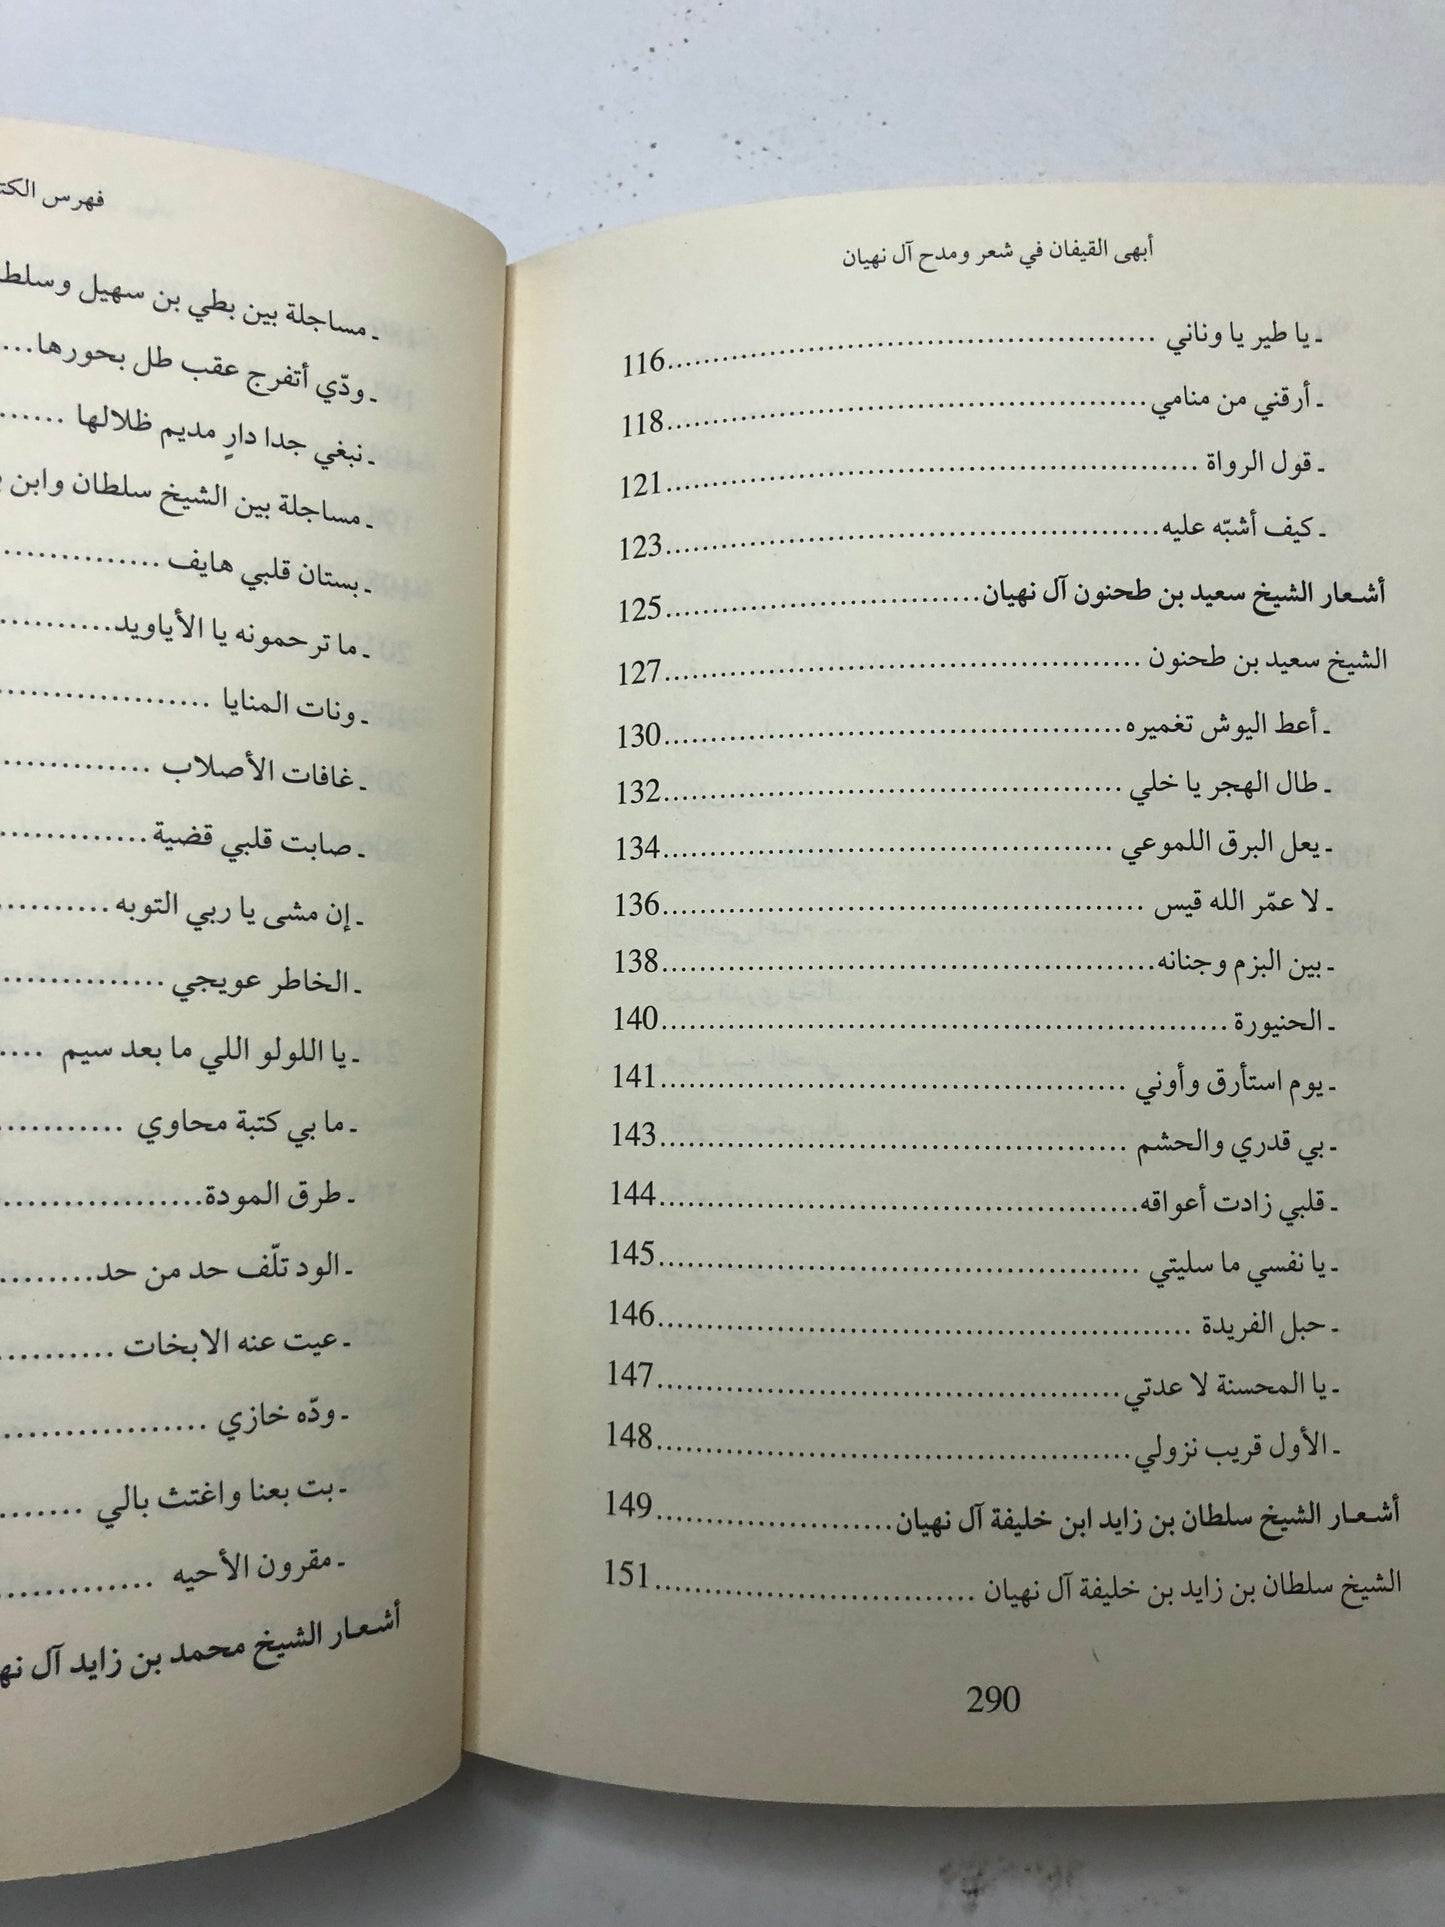 أبهى القيفان في شعر ومدح آل نهيان
ـ يا طير يا وناني ........................................ 116
ـ أرقني من منامي ........................................ 118
ـ قول الرواة ........................................ 121
ـ كيف أشبّه عليه ........................................ 123
أشعار الشيخ سعيد بن طحنون آل نهيان ........................................ 125
الشيخ سعيد بن طحنون ........................................ 127
ـ أعط اليوش تغميره ........................................ 130
ـ طال الهجر يا خلي ........................................ 132
ـ يعل البرق اللموعي ........................................ 134
ـ لا عمّر الله قيس ........................................ 136
ـ بين البزم وجنانه ........................................ 138
ـ الحنيورة ........................................ 140
ـ يوم استأرق وأوني ........................................ 141
ـ بي قدري والحشم ........................................ 143
ـ قلبي زادت أعواقه ........................................ 144
ـ يا نفسي ما سليتي ........................................ 145
ـ حبل الفريدة ........................................ 146
ـ يا المحسنة لا عدتي ........................................ 147
ـ الأول قريب نزولي ........................................ 148
أشعار الشيخ سلطان بن زايد ابن خليفة آل نهيان ........................................ 149
الشيخ سلطان بن زايد بن خليفة آل نهيان ........................................ 151
290
فهرس
ـ مساجلة بين بطي بن سهيل
ـ ودّي أتفرج عقب طل بحورها....
ـ نبغي جدا دارٍ مديم ظلالها ......
ـ مساجلة بين الشيخ سلطان وابن
ـ بستان قلبي هايف ..............
ـ ما ترحمونه يا الأياويد..........
ـ ونات المنايا ..................
ـ غافات الأصلاب ..............
ـ صابت قلبي قضية..............
ـ إن مشى يا ربي التوبه..........
ـ الخاطر عويجي ..............
ـ يا اللولو اللي ما بعد سيم ....
ـ ما بي كتبة محاوي ............
ـ طرق المودة..................
ـ الود تلّف حد من حد........
ـ عيت عنه الابخات ..........
ـ ودّه خازي ..................
ـ بت بعنا واغتث بالي ........
ـ مقرون الأحيه ..............
أشعار الشيخ محمد بن زايد آل